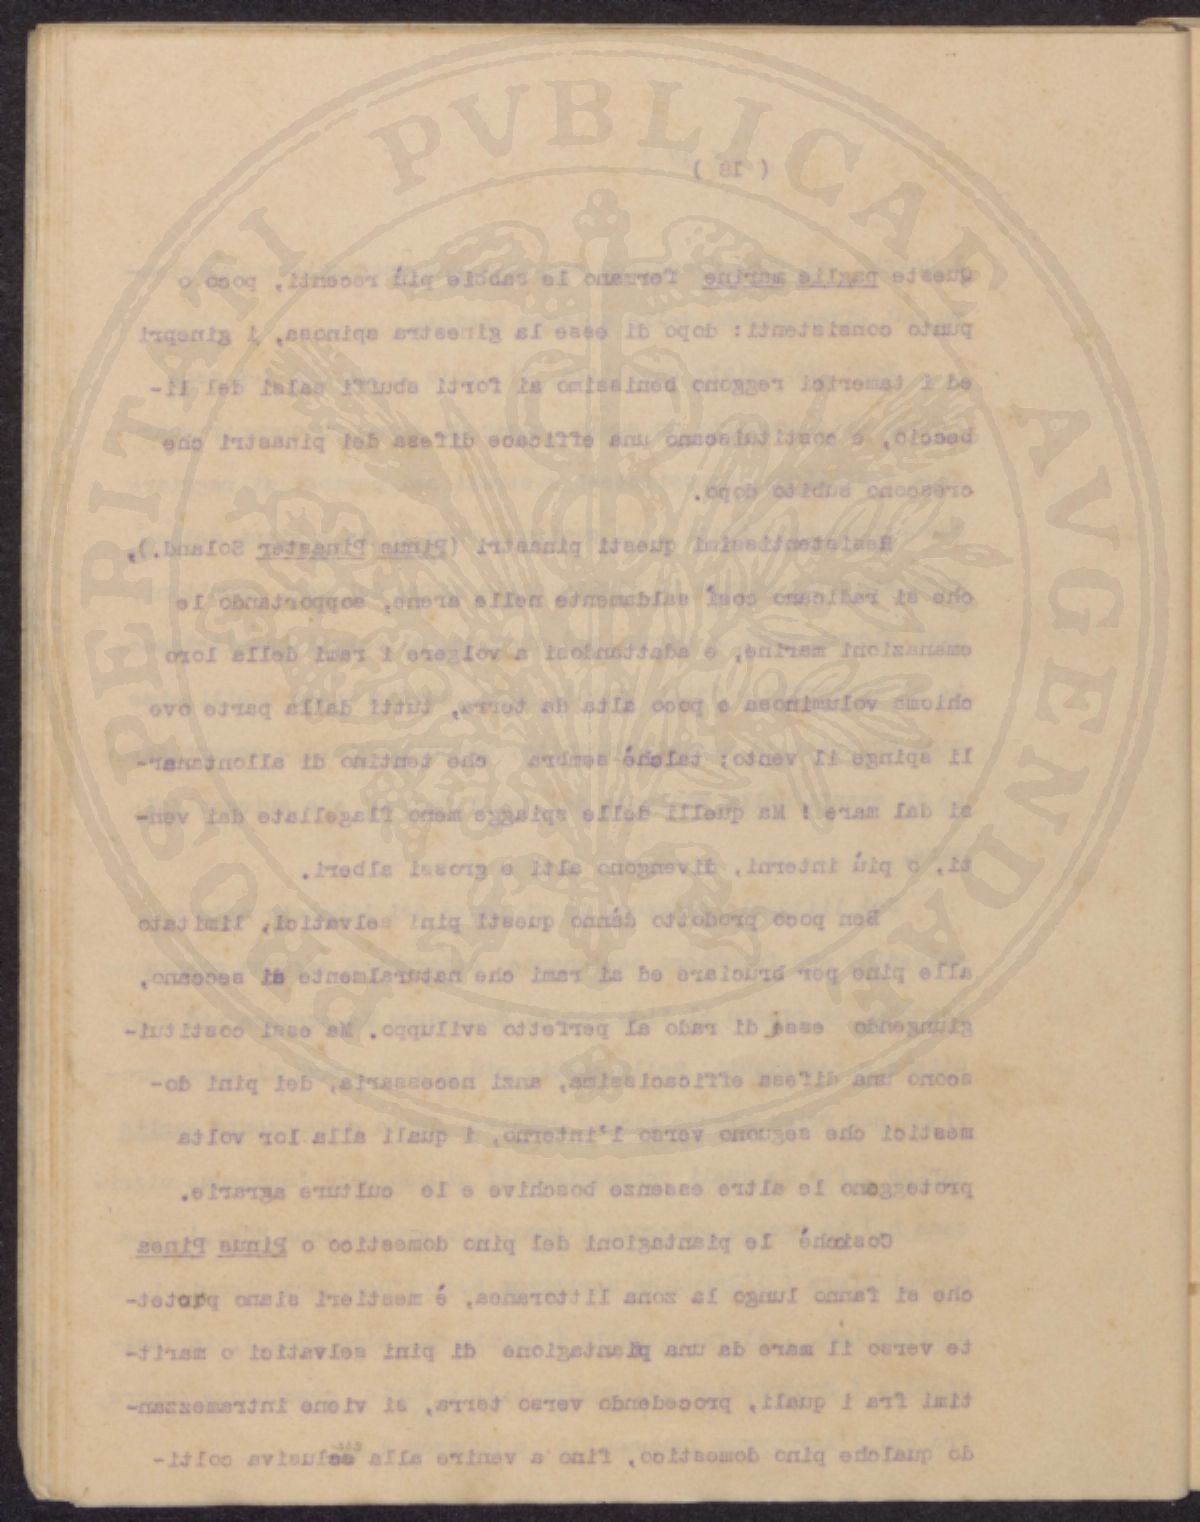 ( 18 )
Queste paglie marine fermano le sabbie più recenti, poco o
punto consistenti: dopo di esse la ginestra spinosa, i ginepri
ed i tamerici reggono benissimo ai forti sbuffi salsi del li-
beccio, e costituiscano una efficace difesa dei pinastri che
crescono subito dopo.
Resistentissimi questi pinastri (Pinus Pinaster Soland.),
che si radicano così saldamente nelle arene, sopportando le
emanazioni marine, e adattandosi a volgere i rami della loro
chioma voluminosa e poco alta da terra, tutti dalla parte ove
li spinge il vento; talchè sembra che tentino di allontanar-
si dal mare ! Ma quelli delle spiagge meno flagellate dai ven-
ti, o più interni, divengono alti e grossi alberi.
Ben poco prodotto dànno questi pini selvatici, limitato
alle pine per bruciare ed ai rami che naturalmente si seccano,
giungendo esse di rado al perfetto sviluppo. Ma essi costitui-
scono una difesa efficacissima, anzi necessaria, dei pini do-
mestici che seguono verso l'interno, i quali alla lor volta
proteggono le altre essenze boschive e le culture agrarie.
Cosichè le piantagioni del pino domestico o Pinus Pinea
che si fanno lungo la zona littoranea, è mestieri siano protet-
te verso il mare da una piantagione di pini selvatici o marit-
timi fra i quali, procedendo verso terra, si viene intramezzan-
do qualche pino domestico, fino a venire alla esclusiva colti-
PROSPERITATI PVBLICAE AVGENDAE